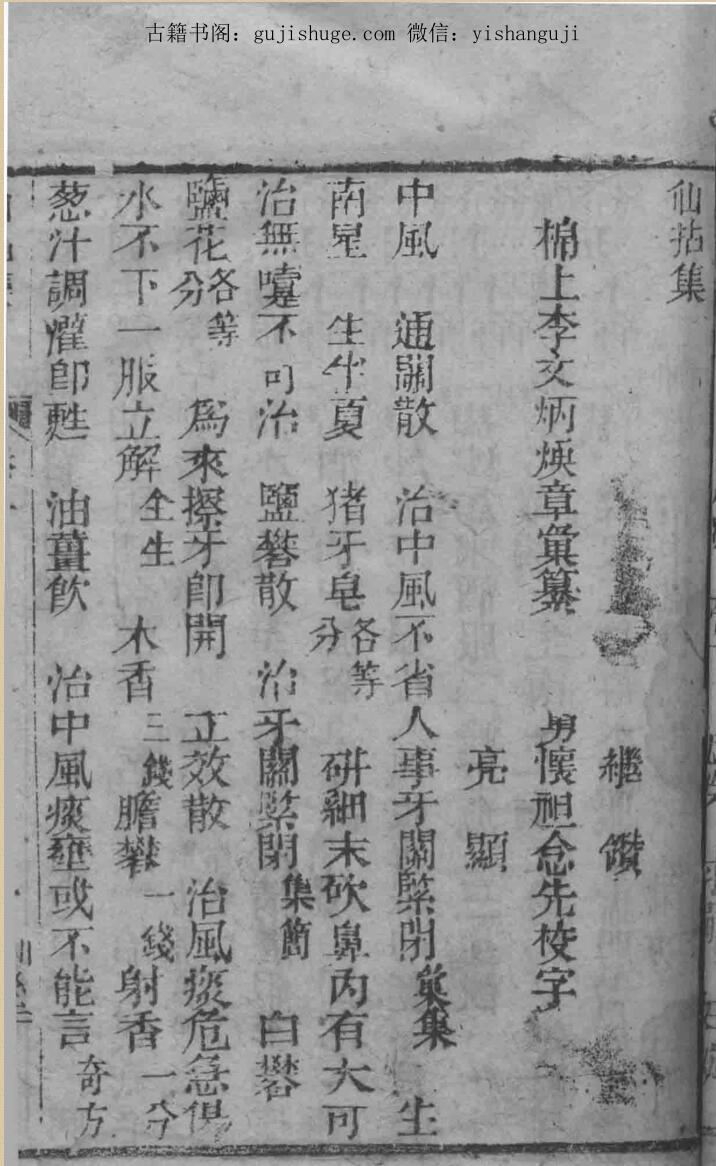 古籍书阁：gujishuge.com 微信：yishanguji
仙拈集
繼 鑽
棉上李文炳煥章彙纂 男懷祖念先校字
亮 顯
中風 通關散 治中風不省人事牙關緊閉 彙集 生
南星 生半夏 猪牙皂 各等分 研細末砍鼻內有大可
治無嚏不可治 鹽礬散 治牙關緊閉 集簡 白礬
鹽花 各等分 爲來擦牙即開 正效散 治風痰危急
水不下一服立解 全生 木香 三錢 膽礬 一錢 射香 一分
葱汁調灌即甦 油薑飲 治中風痰壅或不能言 奇方